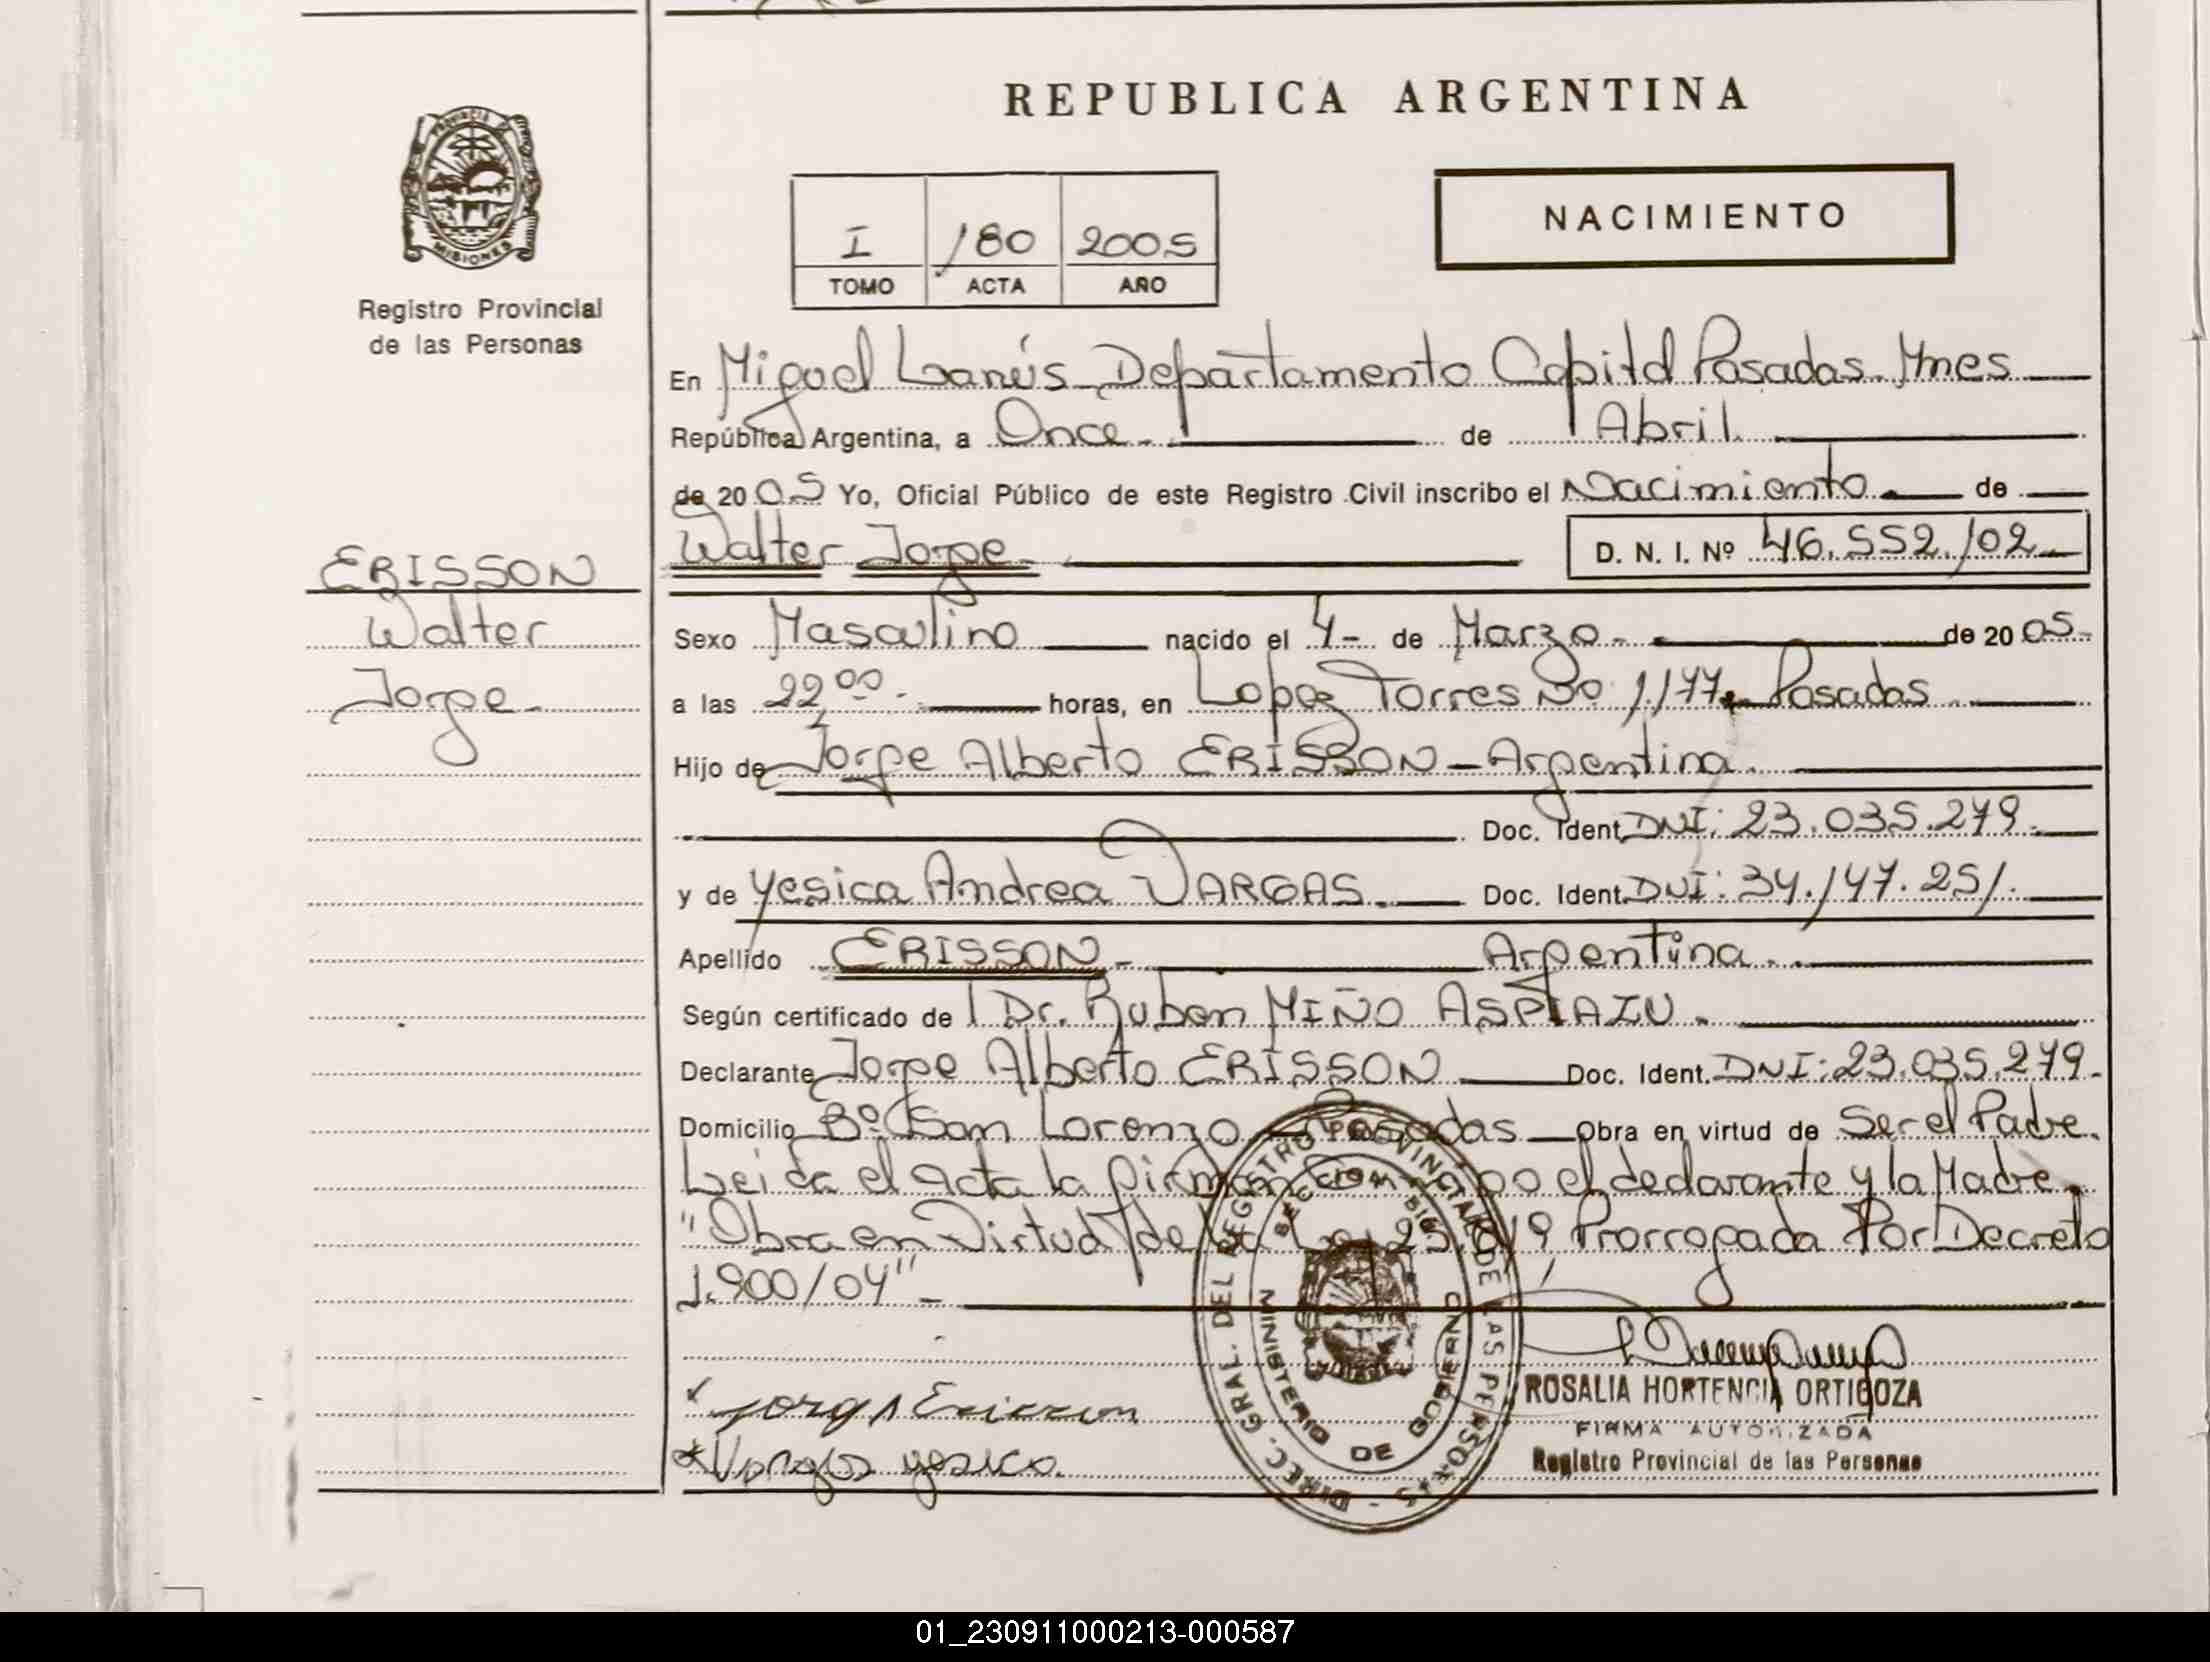 REPUBLICA ARGENTINA
PROVINCIA DE
MISIONES
Registro Provincial
de las Personas
NACIMIENTO
I 180 2005
TOMO ACTA AÑO
En Miguel Lanús Departamento Capital Posadas. Mnes
República Argentina, a Once. de Abril.
de 2005 Yo, Oficial Público de este Registro Civil inscribo el Nacimiento de
Walter Jorge. D. N. I. Nº 46.552.102
ERISSON
Walter
Jorge.
Sexo Masculino nacido el 4- de Marzo. de 2005-
a las 22,00. horas, en Lopez Torres Nº 1.177. Posadas
Hijo de Jorge Alberto ERISSON - Argentina.
Doc. Ident. DNI: 23.035.279.
y de Yesica Andrea VARGAS. Doc. Ident. DNI: 34.147.251.
Apellido ERISSON- Argentina.
Según certificado de Dr. Ruben MIÑO ASPIAZU.
Declarante Jorge Alberto ERISSON Doc. Ident. DNI: 23.035.279.
Domicilio Bº San Lorenzo - Posadas Obra en virtud de Ser el Padre.
Leida el acta la firman el declarante y la Madre.
"Obra en Virtud de la Ley 25.819 Prorrogada Por Decreto
1.900/04"-
DIREC. GRAL. DEL REGISTRO PROVINCIAL DE LAS PERSONAS
MINISTERIO DE GOBIERNO
Jorge A Erisson
Vargas yesica.
ROSALIA HORTENCIA ORTIGOZA
FIRMA AUTORIZADA
Registro Provincial de las Personas
01_230911000213-000587